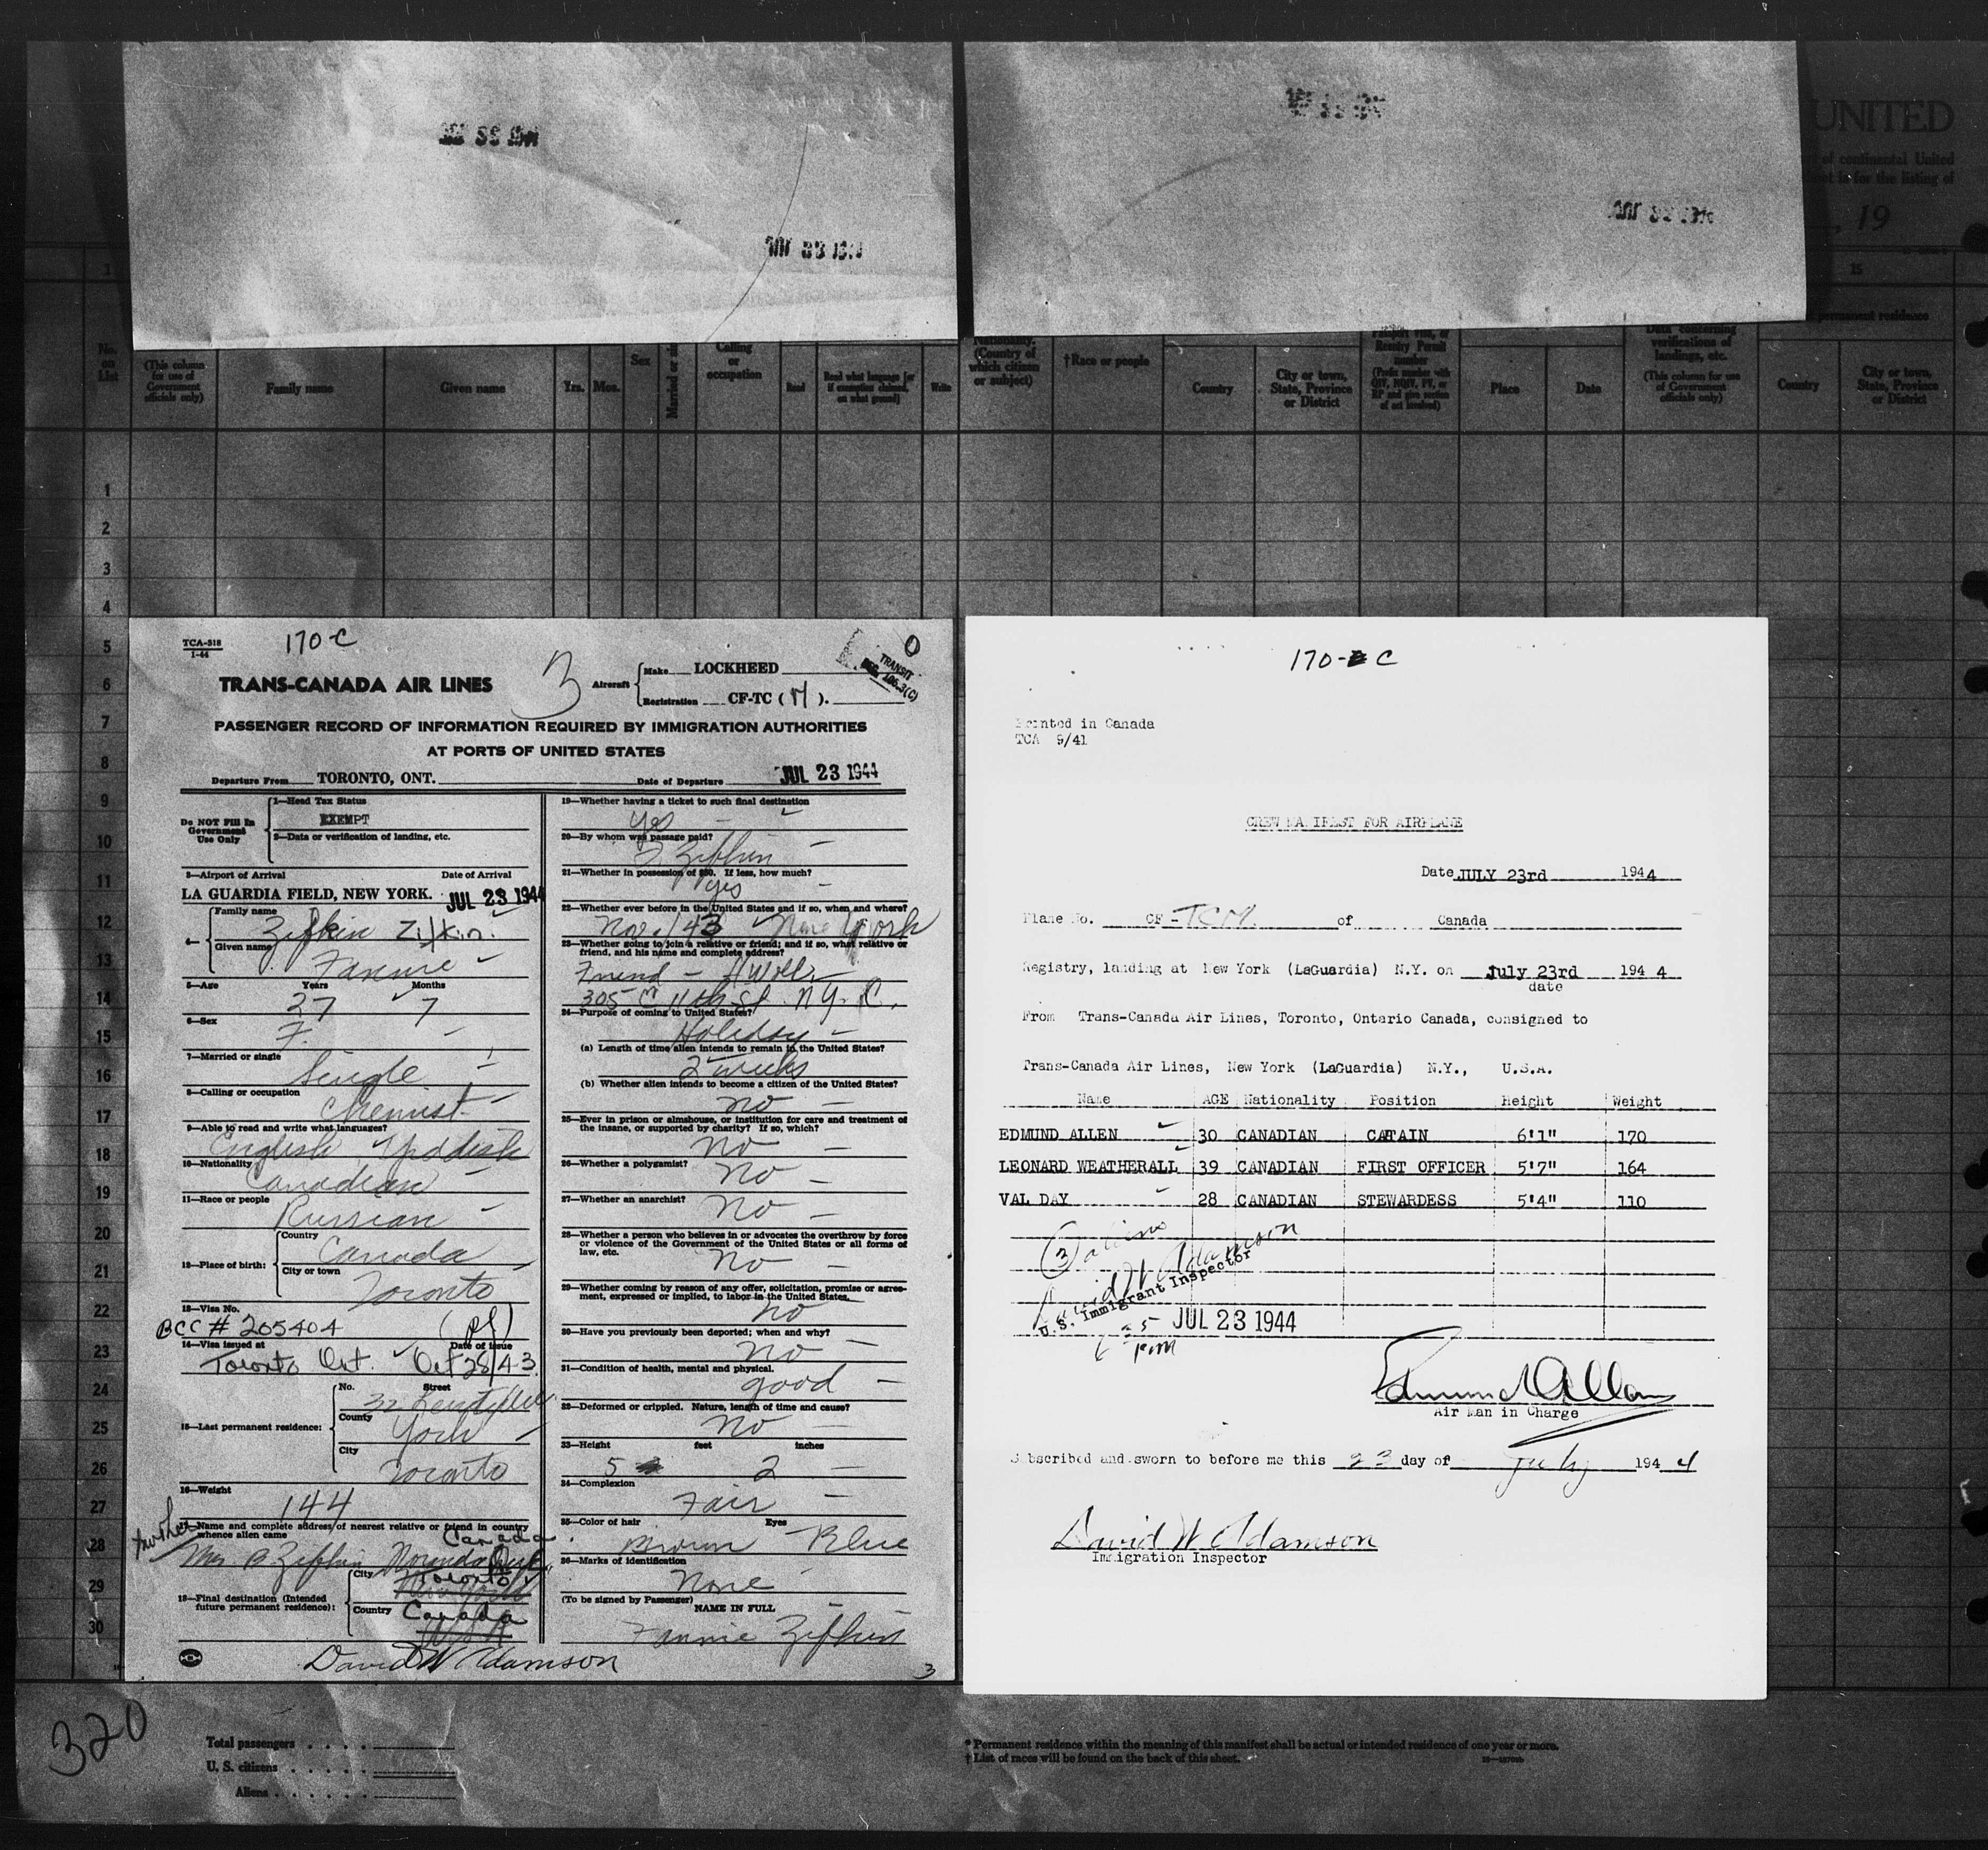 UNITED
of continental United
is for the listing of
, 19
1
15
permanent residence
No. on List
(This column for use of Government officials only)
Family name
Given name
Yrs.
Mos.
Sex
Married or
Calling or occupation
Read
Read what language [or if exemption claimed, on what ground]
Write
(Country of which citizen or subject)
†Race or people
Country
City or town, State, Province or District
Reentry Permit number
(Prefix number with QIV, NQIV, PV, or RP and give section of act involved)
Place
Date
Data concerning verifications of landings, etc.
(This column for use of Government officials only)
Country
City or town, State, Province or District
1
2
3
4
5
6
7
8
9
10
11
12
13
14
15
16
17
18
19
20
21
22
23
24
25
26
27
28
29
30
TCA-518
1-44
170-C
3
0
TRANSIT
TRANS-CANADA AIR LINES
Aircraft
Make LOCKHEED
Registration CF-TC ( M ).
PASSENGER RECORD OF INFORMATION REQUIRED BY IMMIGRATION AUTHORITIES
AT PORTS OF UNITED STATES
Departure From TORONTO, ONT. Date of Departure JUL 23 1944
Do NOT Fill In Government Use Only
1—Head Tax Status
EXEMPT
2—Data or verification of landing, etc.
3—Airport of Arrival Date of Arrival
LA GUARDIA FIELD, NEW YORK. JUL 23 1944
4—
Family name
Zifkin Zifkin
Given name
Fannie
5—Age Years Months
27 7
6—Sex
F.
7—Married or single
Single
8—Calling or occupation
Chemist
9—Able to read and write what languages?
English Yiddish
10—Nationality
Canadian
11—Race or people
Russian
12—Place of birth:
Country
Canada
City or town
Toronto
13—Visa No.
BCC # 205404
14—Visa issued at Date of Issue
Toronto Ont. Oct 28/43
15—Last permanent residence:
No. Street
32
County
York
City
Toronto
16—Weight
144
Mother
Name and complete address of nearest relative or friend in country whence alien came
Canada
Mrs. B Zifkin
18—Final destination (Intended future permanent residence):
City
Toronto
New York
Country
Canada
USA
David W Adamson
19—Whether having a ticket to such final destination
Yes
20—By whom was passage paid?
F Zifkin
21—Whether in possession of $50. If less, how much?
yes
22—Whether ever before in the United States and if so, when and where?
Nov. /43 New York
23—Whether going to join a relative or friend; and if so, what relative or
friend, and his name and complete address?
Friend -
305 E 11th St. N.Y.C.
24—Purpose of coming to United States?
Holiday
(a) Length of time alien intends to remain in the United States?
2 weeks
(b) Whether alien intends to become a citizen of the United States?
no
25—Ever in prison or almshouse, or institution for care and treatment of
the insane, or supported by charity? If so, which?
no
26—Whether a polygamist?
No
27—Whether an anarchist?
No
28—Whether a person who believes in or advocates the overthrow by force
or violence of the Government of the United States or all forms of
law, etc.
No
29—Whether coming by reason of any offer, solicitation, promise or agree-
ment, expressed or implied, to labor in the United States.
no
30—Have you previously been deported; when and why?
no
31—Condition of health, mental and physical.
good
32—Deformed or crippled. Nature, length of time and cause?
No
33—Height feet inches
5 2
34—Complexion
Fair
35—Color of hair Eyes
Brown Blue
36—Marks of identification
None
(To be signed by Passenger)
NAME IN FULL
Fannie Zifkin
3
170- C
Printed in Canada
TCA 9/41
CREW MANIFEST FOR AIRPLANE
Date JULY 23rd 1944
Plane No. CF-TCM. of Canada
Registry, landing at New York (LaGuardia) N.Y. on July 23rd 1944
date
From Trans-Canada Air Lines, Toronto, Ontario Canada, consigned to
Trans-Canada Air Lines, New York (LaGuardia) N.Y., U.S.A.
Name AGE Nationality Position Height Weight
EDMUND ALLEN 30 CANADIAN CAPTAIN 6'1" 170
LEONARD WEATHERALL 39 CANADIAN FIRST OFFICER 5'7" 164
VAL DAY 28 CANADIAN STEWARDESS 5'4" 110
(3) aliens
David W Adamson
U.S. Immigrant Inspector
JUL 23 1944
PM
Edmund Allen
Air Man in Charge
Subscribed and sworn to before me this 23 day of July 1944
David W Adamson
Immigration Inspector
320
Total passengers
U. S. citizens
Aliens
* Permanent residence within the meaning of this manifest shall be actual or intended residence of one year or more.
† List of races will be found on the back of this sheet.